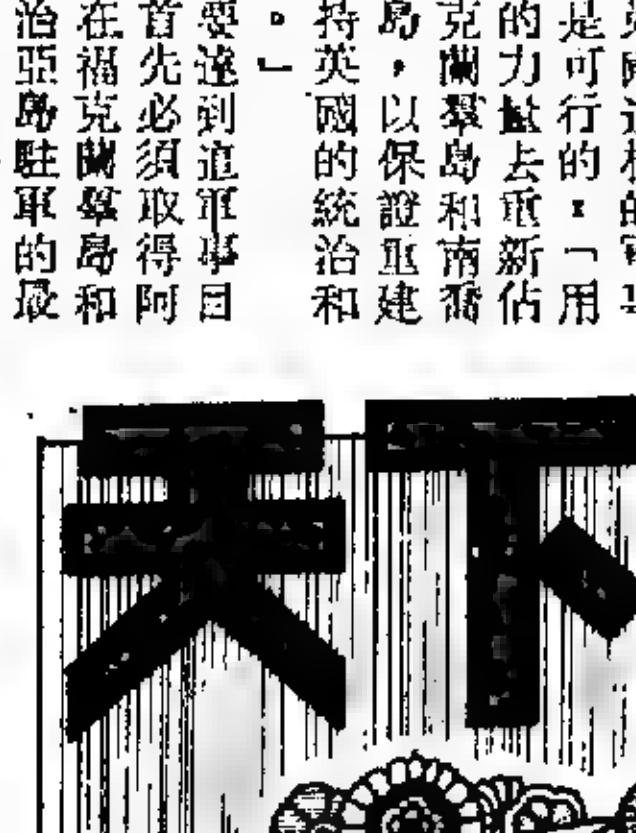 是可行的。「用
的力量去重新佔
克蘭羣島和南喬
島，以保證重建
持英國的統治和
。」
要達到這軍事目
首先必須取得阿
在福克蘭羣島和
治亞島駐軍的最
天下